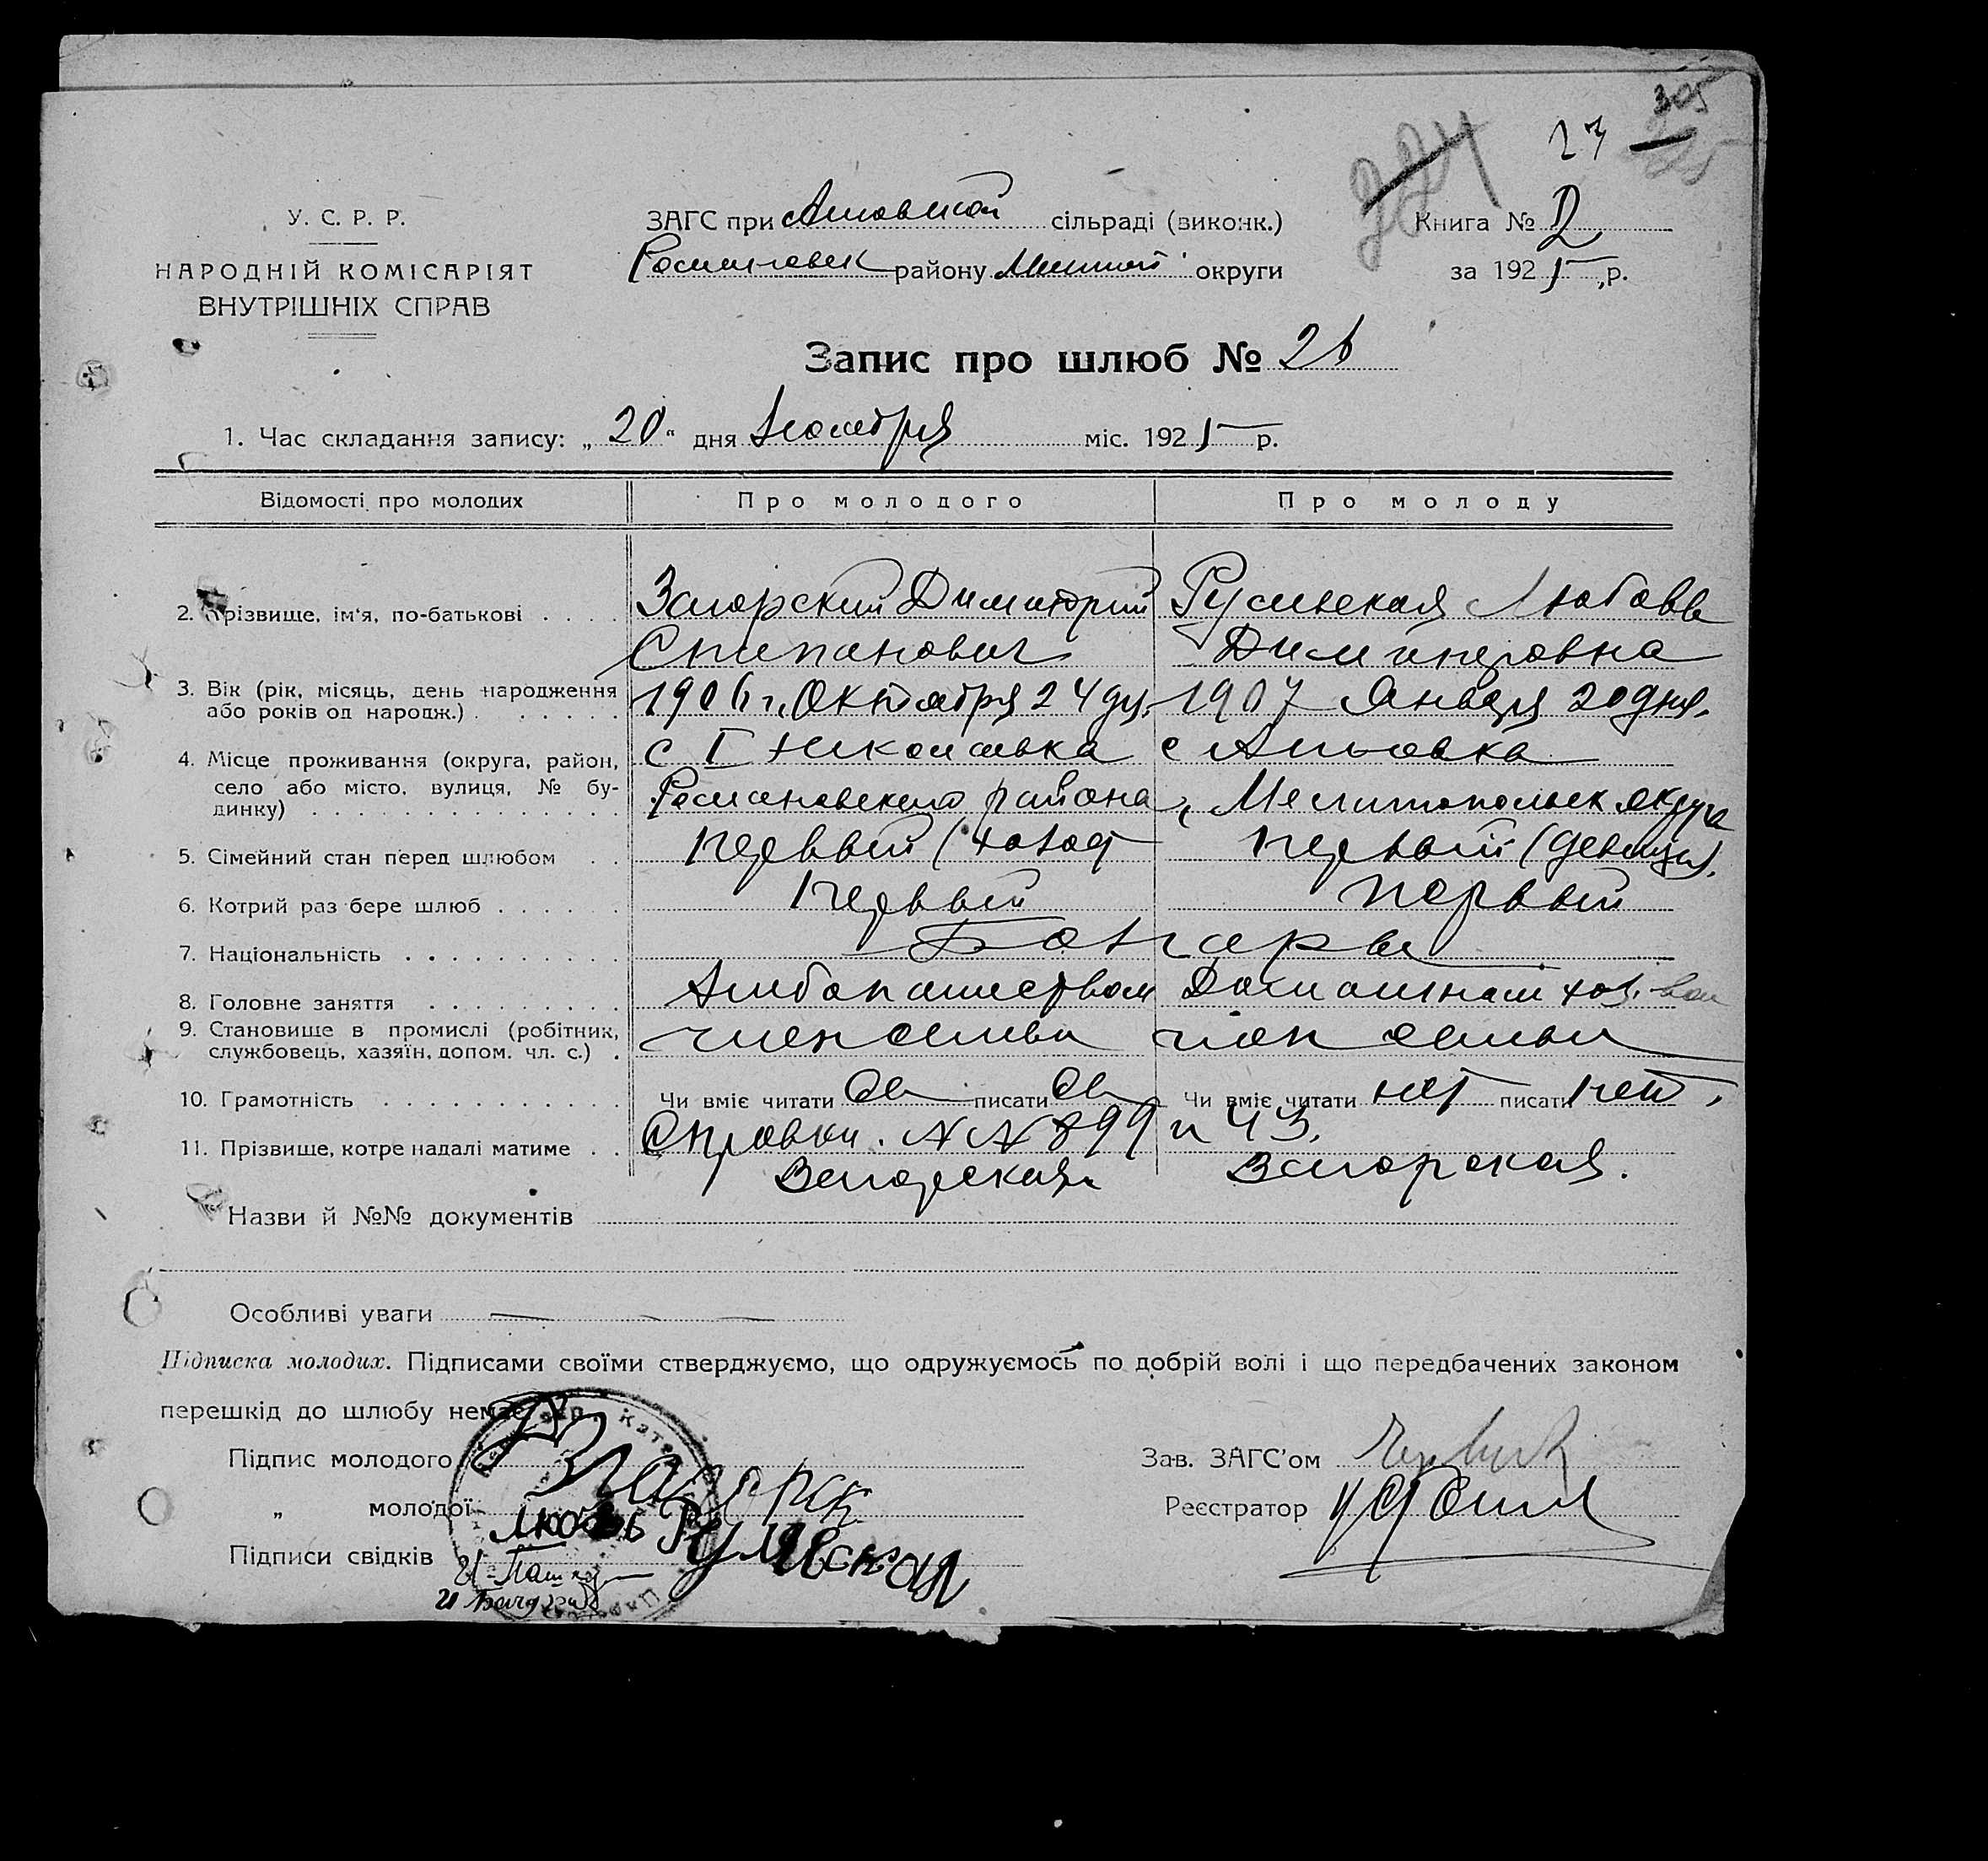 305
224
23
У. С. Р. Р.
НАРОДНІЙ КОМІСАРІЯТ
ВНУТРІШНІХ СПРАВ
ЗАГС при сільраді (виконк.)
Романовск району Мелит округи
Книга № 2
за 1925 р.
Запис про шлюб № 26
1. Час складання запису: „20“ дня Ноября міс. 1925 р.
Відомості про молодих Про молодого Про молоду
2. Прізвище, ім'я, по-батькові Загорский Димитрий Румевская Любовь
Степанович Димитровна
3. Вік (рік, місяць, день народження або років од народж.) 1906 г. Октября 24 дн. 1907 Января 20 дня.
4. Місце проживання (округа, район, село або місто, вулиця, № будинку) с I Николаевка с
Романовского района, Мелитопольск округа
5. Сімейний стан перед шлюбом первый (холост первый (девица).
6. Котрий раз бере шлюб первый первый
7. Національність Болгары
8. Головне заняття Хлебопашеством Домашнем хоз-вом
9. Становище в промислі (робітник, службовець, хазяїн, допом. чл. с.) член семьи член семьи
10. Грамотність Чи вміє читати да писати да Чи вміє читати нет писати нет.
Справки. № № 899 и 43.
11. Прізвище, котре надалі матиме Загорская Загорская.
Назви й №№ документів
Особливі уваги —
Підписка молодих. Підписами своїми стверджуємо, що одружуємось по добрій волі і що передбачених законом
перешкід до шлюбу немає.
Підпис молодого Загорск
„ молодої Любовь Румевская
Підписи свідків
Зав. ЗАГС'ом
Реєстратор